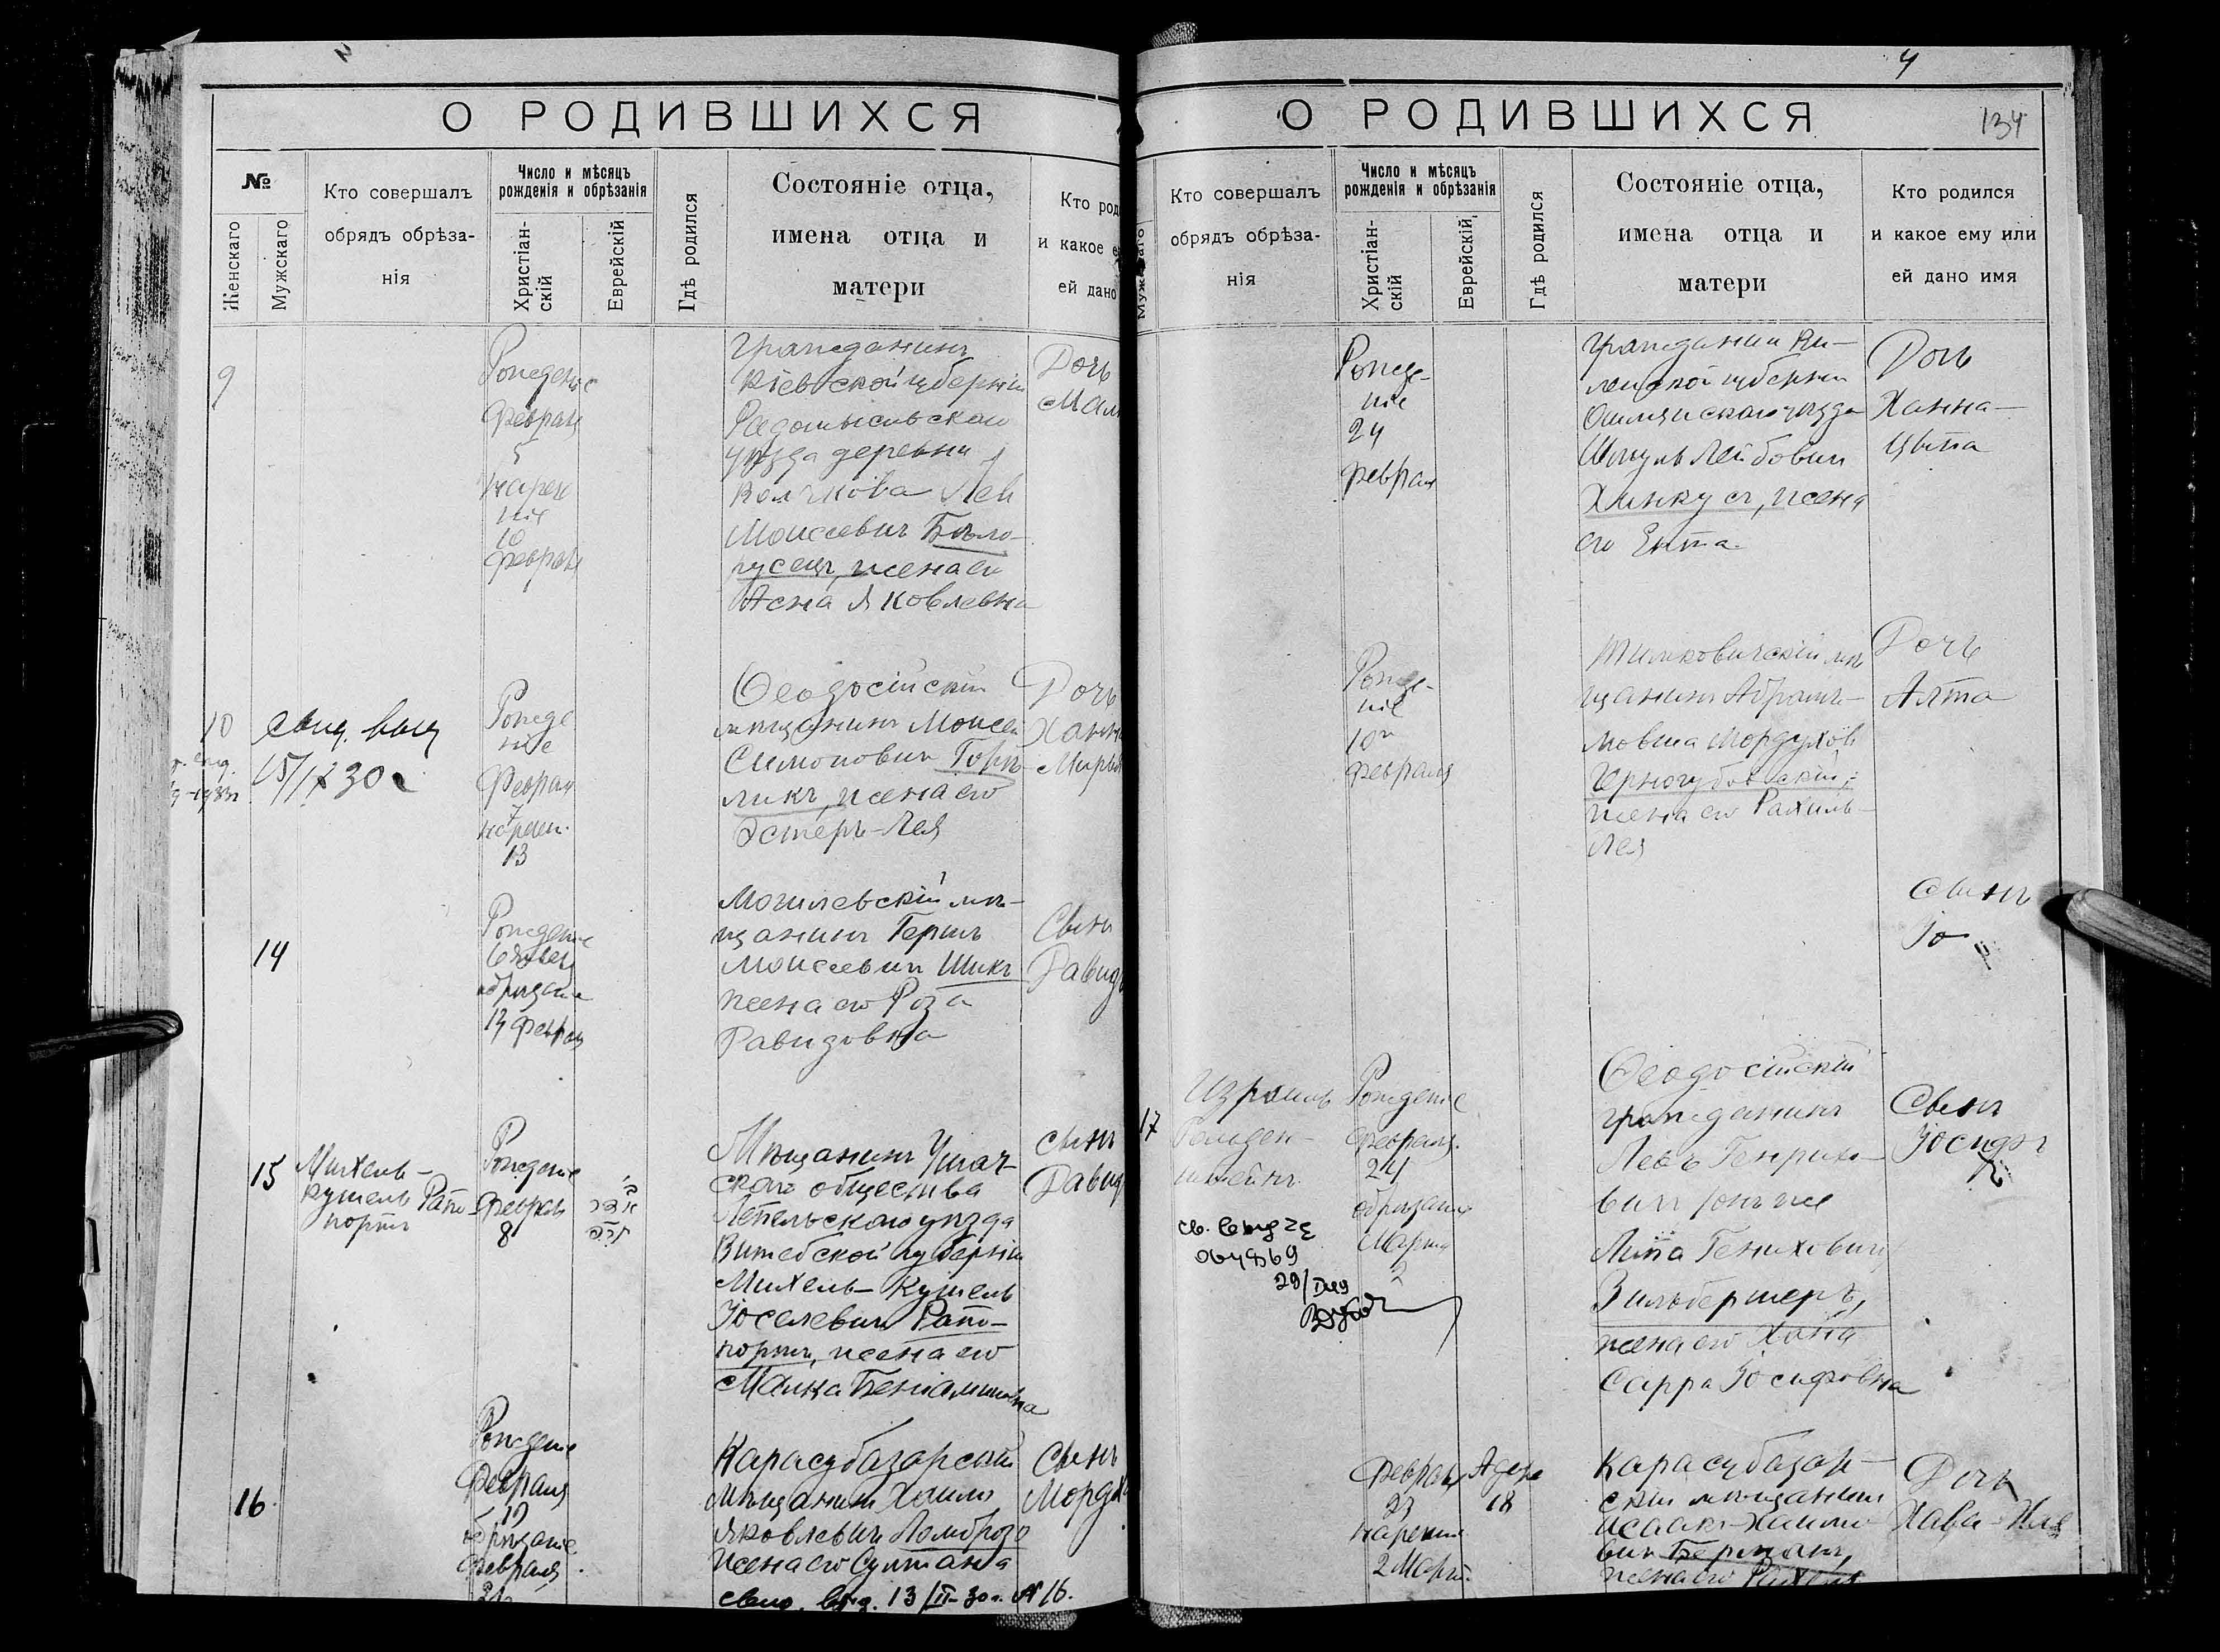 4
О РОДИВШИХСЯ
№
Женскаго
Мужскаго
Кто совершалъ
обрядъ обрѣза-
нія
Число и мѣсяцъ
рожденія и обрѣзанія
Христіан-
скій
Еврейскій
Гдѣ родился
Состояніе отца,
имена отца и
матери
Кто род
и какое е
ей дано
9
Рождение
Февраля
5
Нарече
ніе
10
Февраля
Гражданинъ
Кіевской губерніи
Радомысльскаго
уѣзда деревни
Лей
Моисеевичъ Бѣло-
русецъ, жена его
Асна Яковлевна
Дочь
Мал
10
свид. выд
15/IX 30 г
Рожде
ніе
Февраля
7
нареч.
13
Ѳеодосійскій
мѣщанинъ Моисей
Симоновичъ Горе-
ликъ, жена его
Эстеръ-Лея
Дочь
Ханна
Мирья
14
Рождение
6 Февр
обрѣзание
13 Февраля
Могилевскій мѣ-
щанинъ Гершъ
Моисеевичъ Шикъ
жена его Роза
Давидовна
Сынъ
Давидъ
15
Михель-
Кушель Рапо-
портъ
Рождение
Февраля
8
אדר
Мѣщанинъ Ушач-
скаго общества
Лепельскаго уѣзда
Витебской губерніи
Михель-Кушель
Іоселевичъ Рапо-
портъ, жена его
Малка Беніаминовна
Сынъ
Давид
16
Рождение
Февраля
обрѣзание
Февраля
Карасубазарскій
мѣщанинъ Хаимъ
Яковлевичъ Ломброзо
жена его Султана
свид. выд. 13/II-30 г. № 16.
Сынъ
Мордх
4
134
О РОДИВШИХСЯ
Мужскаго
Кто совершалъ
обрядъ обрѣза-
нія
Число и мѣсяцъ
рожденія и обрѣзанія
Христіан-
скій
Еврейскій
Гдѣ родился
Состояніе отца,
имена отца и
матери
Кто родился
и какое ему или
ей дано имя
Рожде-
ніе
24
Февраля
Гражданин Ви-
ленской губерніи
Ошмянскаго уѣзда
Шмуль Лейбович
Хинкусъ, жена
его Ента
Дочь
Ханна-
Цыпа
Рожде-
ніе
10го
Февраля
Тимковичскій мѣ-
щанинъ Абрамъ-
Мовша Мордухов
Черногубовскій,
жена его Рахиль-
Лея
Дочь
Алта
Сынъ
Іо
17
Израиль
Гольден-
штейнъ
Рождение
Февраля
24
обрѣзание
Марта
2
Ѳеодосійскій
гражданинъ
Левъ Генрихо-
вичъ онъ же
Липа Гениховичъ
Зильбершеръ,
жена его Хана
Сарра Іосифовна
Сынъ
Іосифъ
Февраля
23
нарение
2 Март.
Адера
18
Карасубазар-
скій мѣщанинъ
Исаакъ-Хаимо
вичъ Берманъ,
жена его Рахель
Дочь
Хава-